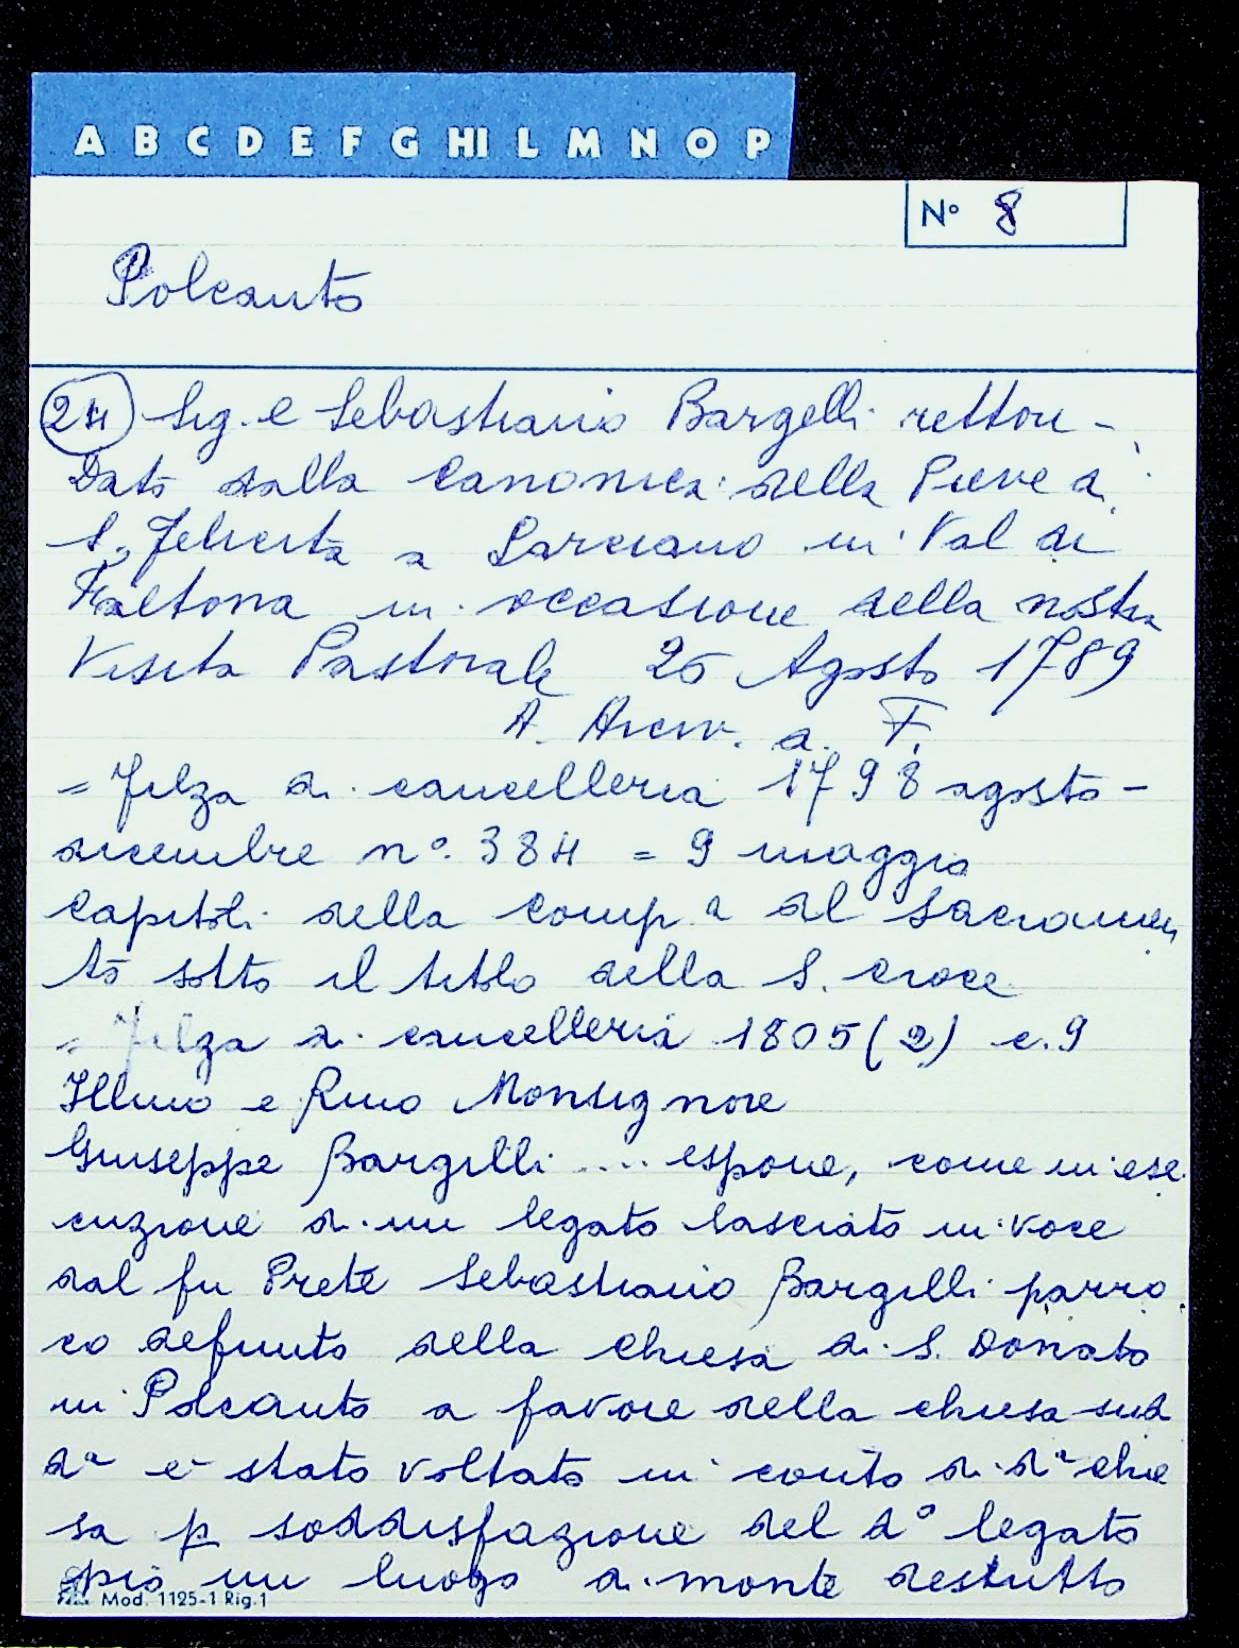 A B C D E F G HI L M N O P
Nº 8
Polcanto
24 Sig. e Sebastiano Bargelli rettore -
Dato dalla Canonica della Pieve di
S. Felicita a Larciano in Val di
Faltona in occasione della nostra
Visita Pastorale 26 Agosto 1789
A. Arciv. di F.
= Filza di cancelleria 1798 agosto -
dicembre nº. 384 = 9 maggio
Capitoli della Comp.a del Sacramen
to sotto il titolo della S. Croce
= Filza di cancelleria 1805 (2) c. 9
Illmo e Rmo Monsignore
Giuseppe Bargilli .... espone, come in ese
cuzione di un legato lasciato in voce
dal fu Prete Sebastiano Bargilli parro
co defunto della chiesa di S. Donato
in Polcanto a favore della chiesa sud
dª è stato voltato in conto di dª chie
sa p soddisfazione del dº legato
pio un luogo di monte
Mod. 1125-1 Rig.1